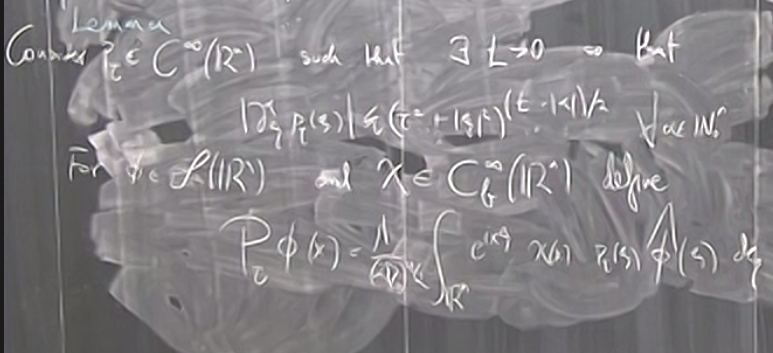 Lemma
Consider P_τ ∈ C^∞(ℝ^n) such that ∃ t>0 so that
|D_ξ^α P_τ(ξ)| ≲ (τ² + |ξ|²)^{(t-|α|)/2} ∀ α ∈ ℕ^n
For ϕ ∈ 𝒮(ℝ^n) and χ ∈ C_b^∞(ℝ^n) define
P_τ ϕ(x) = 1/(2π)^{n/2} ∫_{ℝ^n} e^{ixξ} χ(x) P_τ(ξ) ϕ̂(ξ) dξ